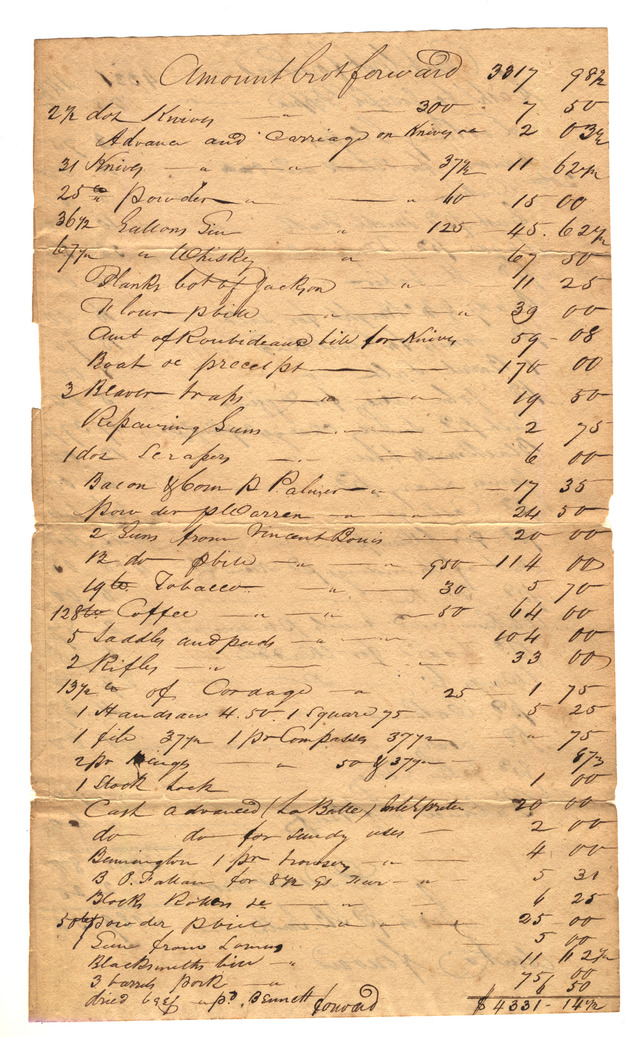 Amount brot forward 3317 98½
2½ doz Knives " — 300 — 7 50
Advance and Carriage on Knives &c 2 03½
31 Knives — " — " — 37½ 11 62½
25 lb " Powder — " — " 60 15 00
36½ Gallons Gin " 125 — 45. 62½
67½ " Whiskey " — 67 50
Planks bot of Jackson — " 11 25
Flour pr bill — " — " — " 39 00
Amt of Roubideaux bill for Knives 59 - 08
Boat &c pr receipt — " — 170 00
3 Beaver traps — " — " — 19 50
Repairing Guns — " — 2 75
1 doz Scrapers — " — 6 00
Bacon & Corn p Palmer — " — 17 35
Powder p Warren — " — 24 50
2 Guns from Vincent Bouis 20 00
12 do pbill — " — " — 950 — 114 00
19 lb Tobacco — " — 30 5 70
128 lb Coffee " — " — 50 64 00
5 Saddles and pads — " — " — 104 00
2 Rifles — " — " 33 00
13½ lb of Cordage — " 25 — 1 75
1 Handsaw 4.50. 1 Square 75 5 25
1 file 37½ 1 pr Compasses 37½ — " 75
2 pr Hinges — " 50 & 37½ — 87½
1 Stock Lock 1 00
Cash advanced (La Batte) Interpreter 20 00
do do for sundry uses — 2 00
Bennington 1 pr trowsers " 4 00
B. O. Fallan for 8½ — " 5 31
Blocks &c — " 6 25
50 lbs Powder pbill — " — " — 25 00
1 Gun from 5 00
Blacksmiths bill — " 11 12½
3 barrels Pork — " 75 00
dried beef " pd. Bennett 6 50
forward $ 4331 - 14½